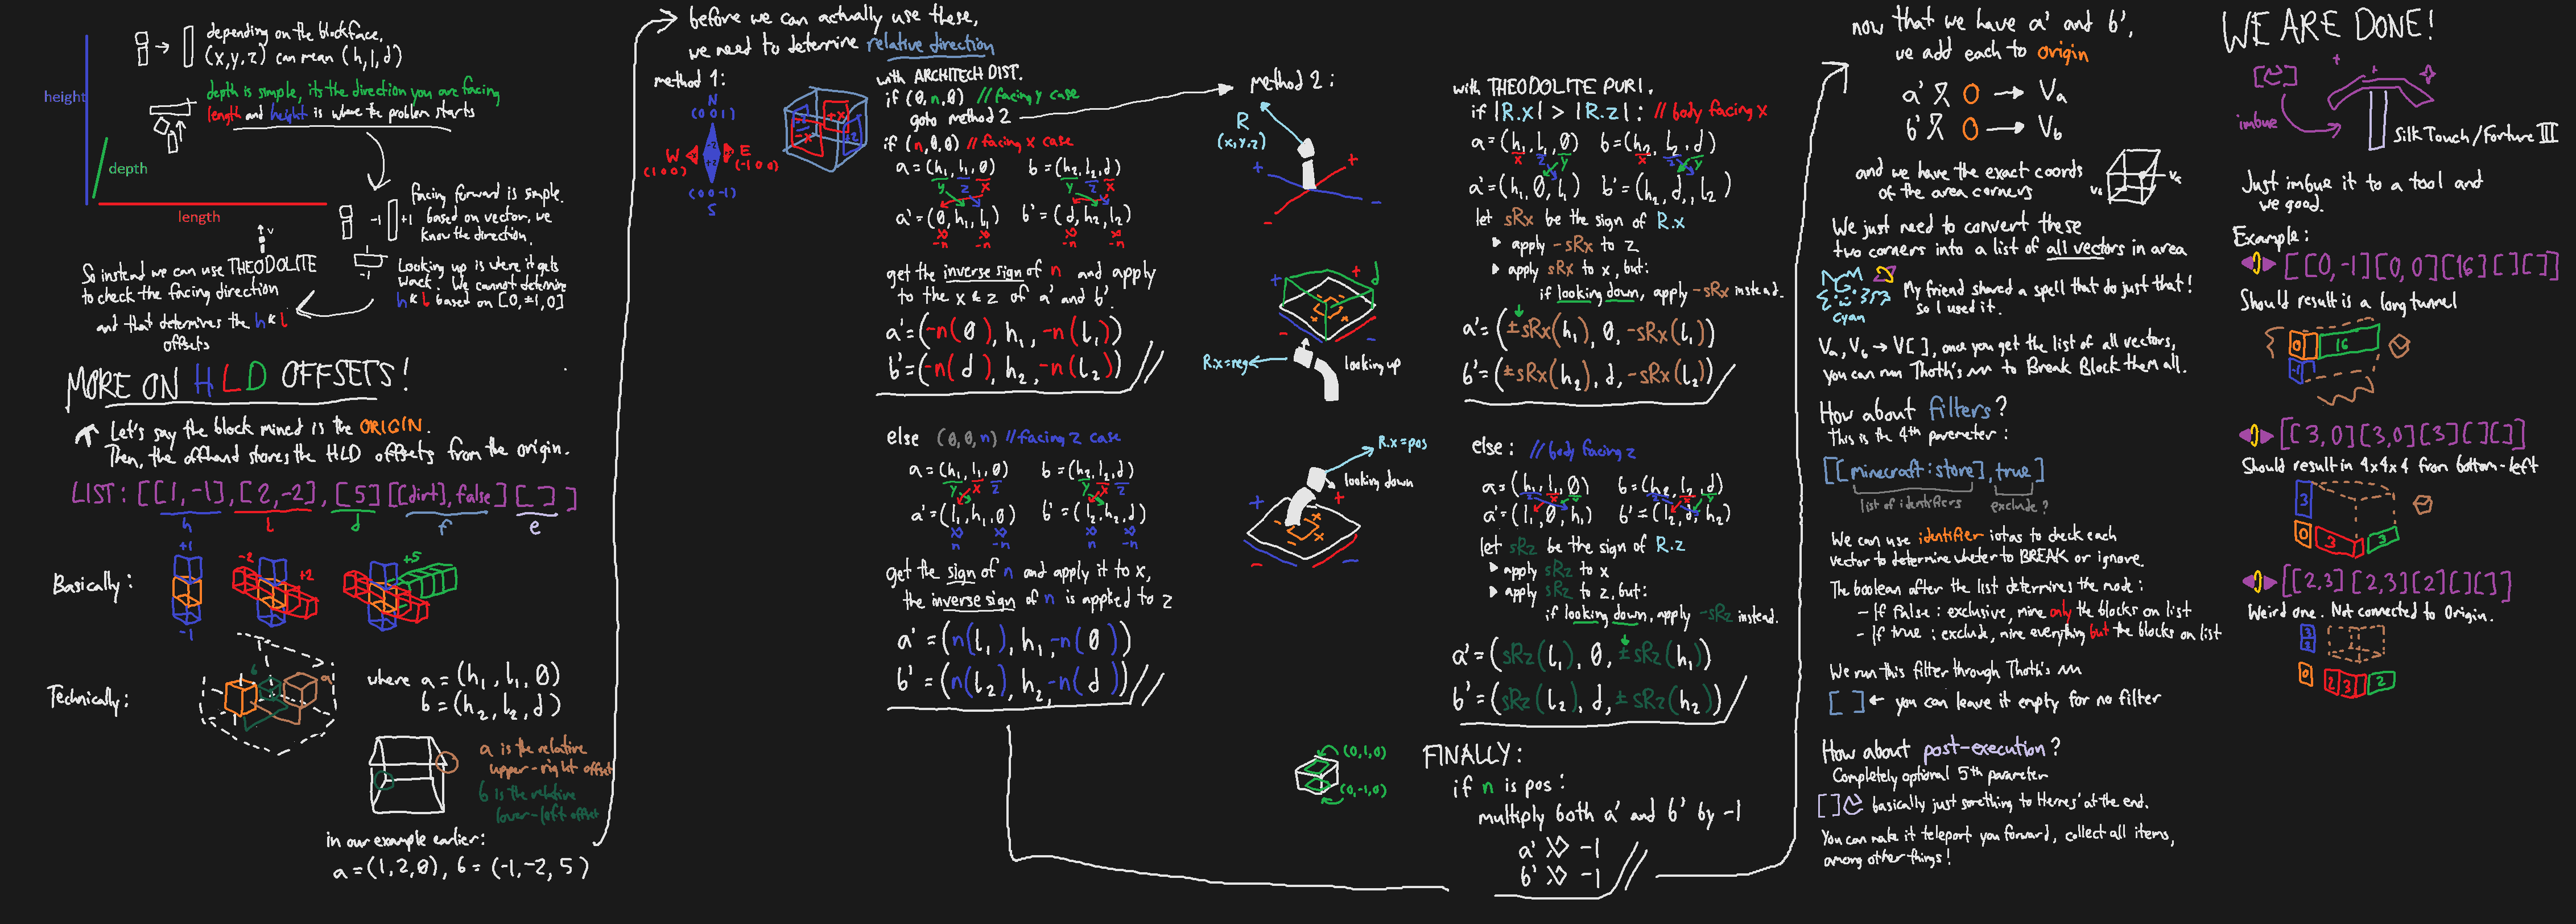 depending on the blockface,
(x,y,z) can mean (h,l,d)
depth is simple, its the direction you are facing
length and height is where the problem starts
height
depth
length
facing forward is simple.
-1 +1
based on vector, we
know the direction.
v
-1
Looking up is where it gets
wack. We cannot determine
h & l based on [0,±1,0]
So instead we can use THEODOLITE
to check the facing direction
and that determines the h & l
offsets
MORE ON HLD OFFSETS!
Let's say the block mined is the ORIGIN.
Then, the offhand stores the HLD offsets from the origin.
LIST: [[1,-1],[2,-2],[5][[dirt],false][ ]]
h l d f e
Basically:
+1
-1
-2
+2
+5
Technically:
b
a
where a = (h₁, l₁, 0)
b = (h₂, l₂, d)
a is the relative
upper-right offset
b is the relative
lower-left offset
in our example earlier:
a = (1,2,0), b = (-1,-2,5)
before we can actually use these,
we need to determine relative direction
method 1:
N
(0 0 1)
W
(1 0 0)
E
(-1 0 0)
(0 0 -1)
S
-z
+z
+x
-x
with ARCHITECH DIST.
if (0,n,0) //facing y case
goto method 2
if (n,0,0) //facing x case
a = (h₁, l₁, 0) b = (h₂, l₂, d)
y z x y z x
a' = (0, h₁, l₁) b' = (d, h₂, l₂)
-n -n -n -n
get the inverse sign of n and apply
to the x & z of a' and b'.
a' = (-n(0), h₁, -n(l₁))
b' = (-n(d), h₂, -n(l₂))
else (0,0,n) //facing z case
a = (h₁, l₁, 0) b = (h₂, l₂, d)
y x z y x z
a' = (l₁, h₁, 0) b' = (l₂, h₂, d)
n -n n -n
get the sign of n and apply it to x,
the inverse sign of n is applied to z
a' = (n(l₁), h₁, -n(0))
b' = (n(l₂), h₂, -n(d))
method 2:
R
(x,y,z)
+ +
- -
+ + d
R.x=neg
looking up
R.x=pos
looking down
+ +
- -
with THEODOLITE PURI.
if |R.x| > |R.z|: // body facing x
a = (h₁, l₁, 0) b = (h₂, l₂, d)
x z y x z y
a' = (h₁, 0, l₁) b' = (h₂, d, l₂)
let sRx be the sign of R.x
apply -sRx to z
apply sRx to x, but:
if looking down, apply -sRx instead.
a' = (±sRx(h₁), 0, -sRx(l₁))
b' = (±sRx(h₂), d, -sRx(l₂))
else: // body facing z
a = (h₁, l₁, 0) b = (h₂, l₂, d)
z x y z x y
a' = (l₁, 0, h₁) b' = (l₂, d, h₂)
let sRz be the sign of R.z
apply sRz to x
apply sRz to z, but:
if looking down, apply -sRz instead.
a' = (sRz(l₁), 0, ±sRz(h₁))
b' = (sRz(l₂), d, ±sRz(h₂))
(0,1,0)
(0,-1,0)
FINALLY:
if n is pos:
multiply both a' and b' by -1
a' -1
b' -1
now that we have a' and b',
we add each to origin
a' O → Va
b' O → Vb
and we have the exact coords
of the area corners
We just need to convert these
two corners into a list of all vectors in area
Cyan
My friend shared a spell that do just that!
So I used it.
Va, Vb → V[ ], once you get the list of all vectors,
you can run Thoth's to Break Block them all.
How about filters?
This is the 4th paremeter:
[[minecraft:stone],true]
list of identifiers exclude?
We can use identifier iotas to check each
vector to determine wheter to BREAK or ignore.
The boolean after the list determines the mode:
- If false: exclusive, mine only the blocks on list
- If true: exclude, mine everything but the blocks on list
We run this filter through Thoth's
[ ] ← you can leave it empty for no filter
How about post-execution?
Completely optional 5th parameter
[ ] basically just something to Hermes' at the end.
You can make it teleport you forward, collect all items,
among other things!
WE ARE DONE!
imbue
Silk Touch/Fortune III
Just imbue it to a tool and
we good.
Example:
[[0,-1][0,0][16][][]]
Should result is a long tunnel
0 16
-1
[[3,0][3,0][3][][]]
Should result in 4x4x4 from bottom-left
3
0 3 3
[[2,3][2,3][2][][]]
Weird one. Not connected to Origin.
3
2
0 2 3 2